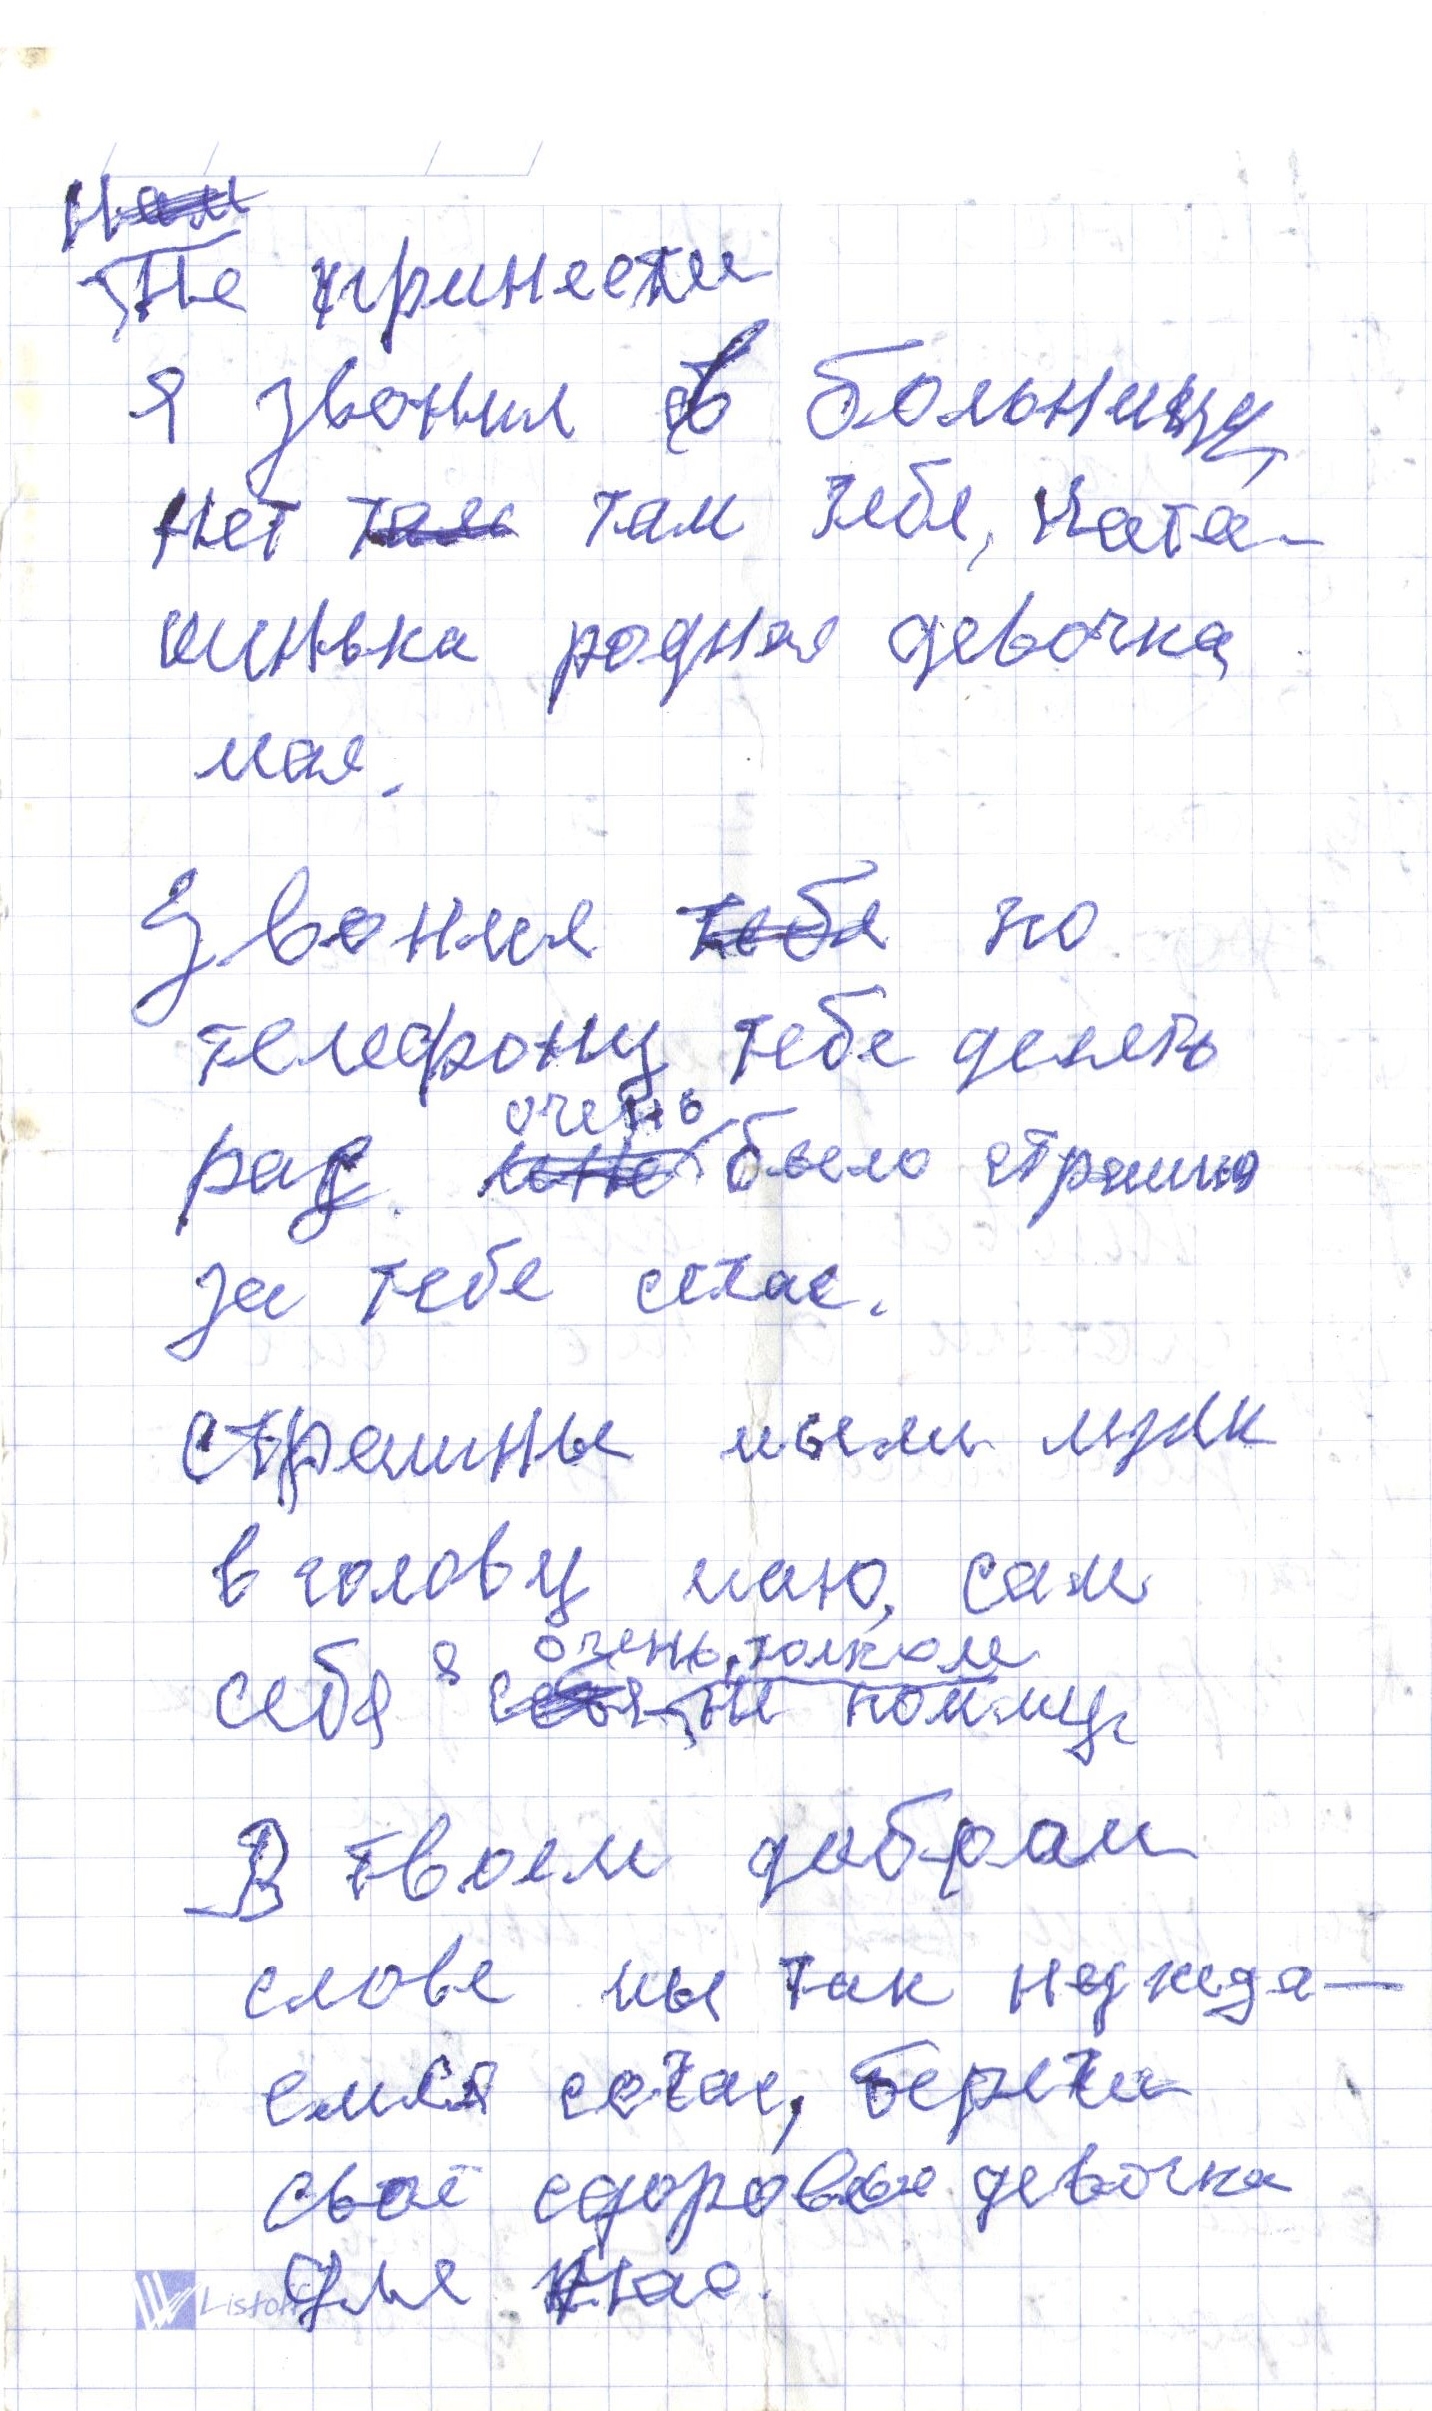 нам
Не принести
я звонил в больницу
нет там там тебя, ната-
шинька родная девочка
мая.
Звонил тебя по
телефону тебе девять
раз. очень
мне было страшно
за тебе счас.
страшные мысли
в голову маю, сам
очень
себя я себя не пойму.
В твоем добром
слове мы так нужда-
емся сечас, береги
своё сдоровье девочка
для нас.
Listoff